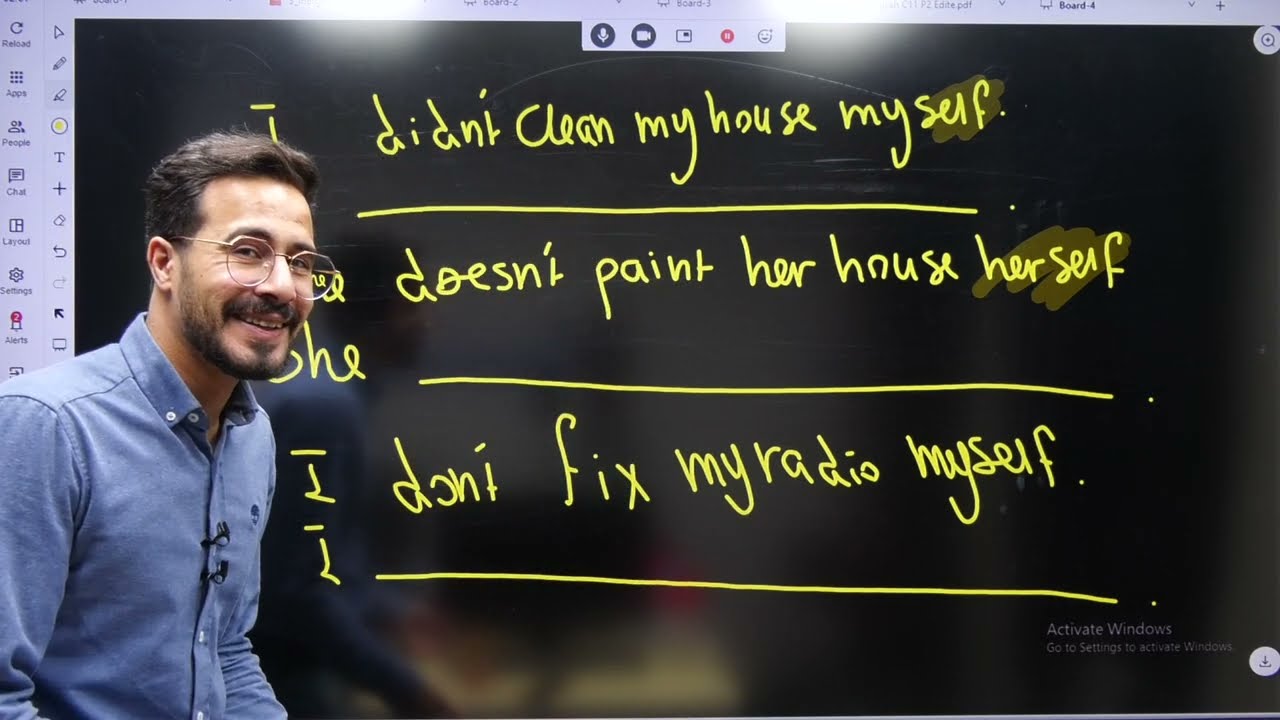 Board-2
Board-3
C11 P2 Edite.pdf
Board-4
Reload
Apps
People
Chat
Layout
Settings
2
Alerts
T
I didn't clean my house myself.
.
doesn't paint her house herself
She .
I don't fix my radio myself.
I .
Activate Windows
Go to Settings to activate Windows.